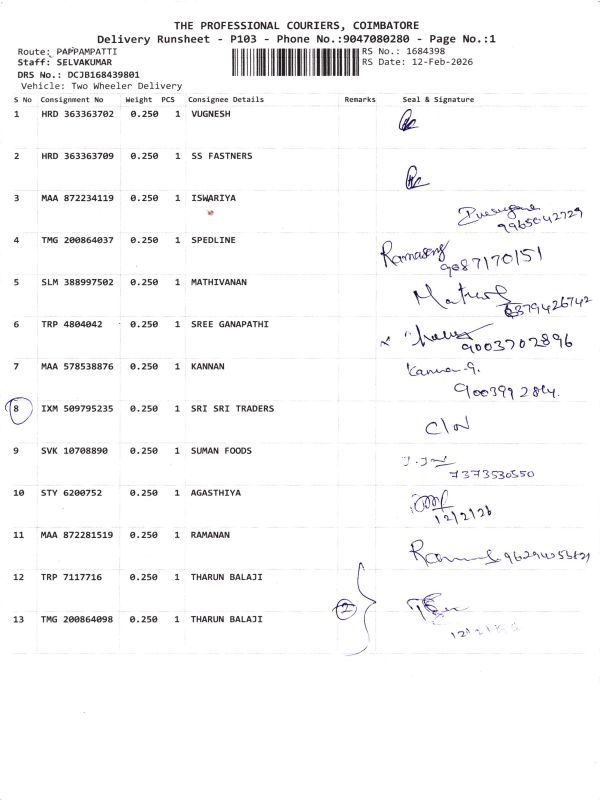 THE PROFESSIONAL COURIERS, COIMBATORE
Delivery Runsheet - P103 - Phone No.:9047080280 - Page No.:1
Route: PAPPAMPATTI RS No.: 1684398
Staff: SELVAKUMAR RS Date: 12-Feb-2026
DRS No.: DCJB168439801
Vehicle: Two Wheeler Delivery
S No Consignment No Weight PCS Consignee Details Remarks Seal & Signature
1 HRD 363363702 0.250 1 VUGNESH
2 HRD 363363709 0.250 1 SS FASTNERS
3 MAA 872234119 0.250 1 ISWARIYA
9965042729
4 TMG 200864037 0.250 1 SPEDLINE
9087170151
5 SLM 388997502 0.250 1 MATHIVANAN
6379426742
6 TRP 4804042 0.250 1 SREE GANAPATHI
9003702896
7 MAA 578538876 0.250 1 KANNAN
8 IXM 509795235 0.250 1 SRI SRI TRADERS
C/N
9 SVK 10708890 0.250 1 SUMAN FOODS
7373530550
10 STY 6200752 0.250 1 AGASTHIYA
12/2/26
11 MAA 872281519 0.250 1 RAMANAN
12 TRP 7117716 0.250 1 THARUN BALAJI
2
13 TMG 200864098 0.250 1 THARUN BALAJI